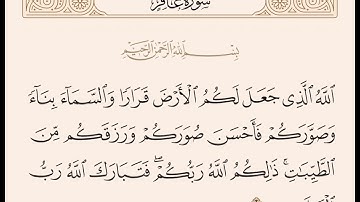 سورة غافر
بِسْمِ ٱللَّهِ ٱلرَّحْمَٰنِ ٱلرَّحِيمِ
ٱللَّهُ ٱلَّذِى جَعَلَ لَكُمُ ٱلْأَرْضَ قَرَارًا وَٱلسَّمَآءَ بِنَآءً
وَصَوَّرَكُمْ فَأَحْسَنَ صُوَرَكُمْ وَرَزَقَكُم مِّنَ
ٱلطَّيِّبَٰتِ ۚ ذَٰلِكُمُ ٱللَّهُ رَبُّكُمْ ۖ فَتَبَارَكَ ٱللَّهُ رَبُّ